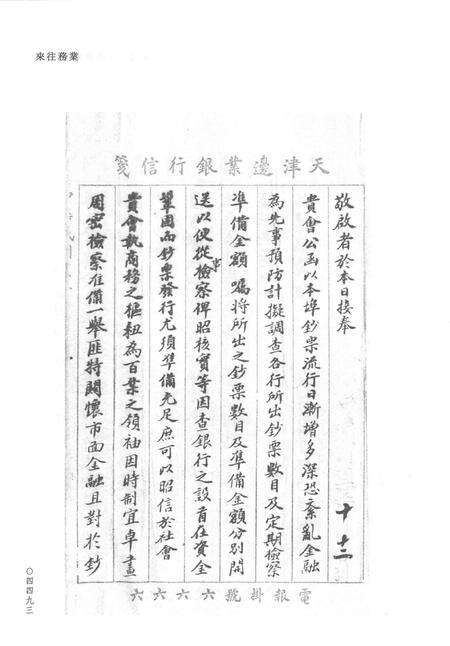 來往務業
天津邊業銀行信箋
十 十三
敬啟者於本日接奉
貴會公函以本埠鈔票流行日漸增多深恐紊亂金融
為先事預防計擬調查各行所出鈔票數目及定期檢察
準備金額囑將所出之鈔票數目及準備金額分別開
送以便從事檢察俾昭核實等因查銀行之設首在資金
鞏固而鈔票發行尤須準備充足庶可以昭信於社會
貴會執商務之樞紐為百業之領袖因時制宜卓畫
周密檢察准備一舉匪特關懷市面金融且對於鈔
電報掛號六六六六
〇四四九三